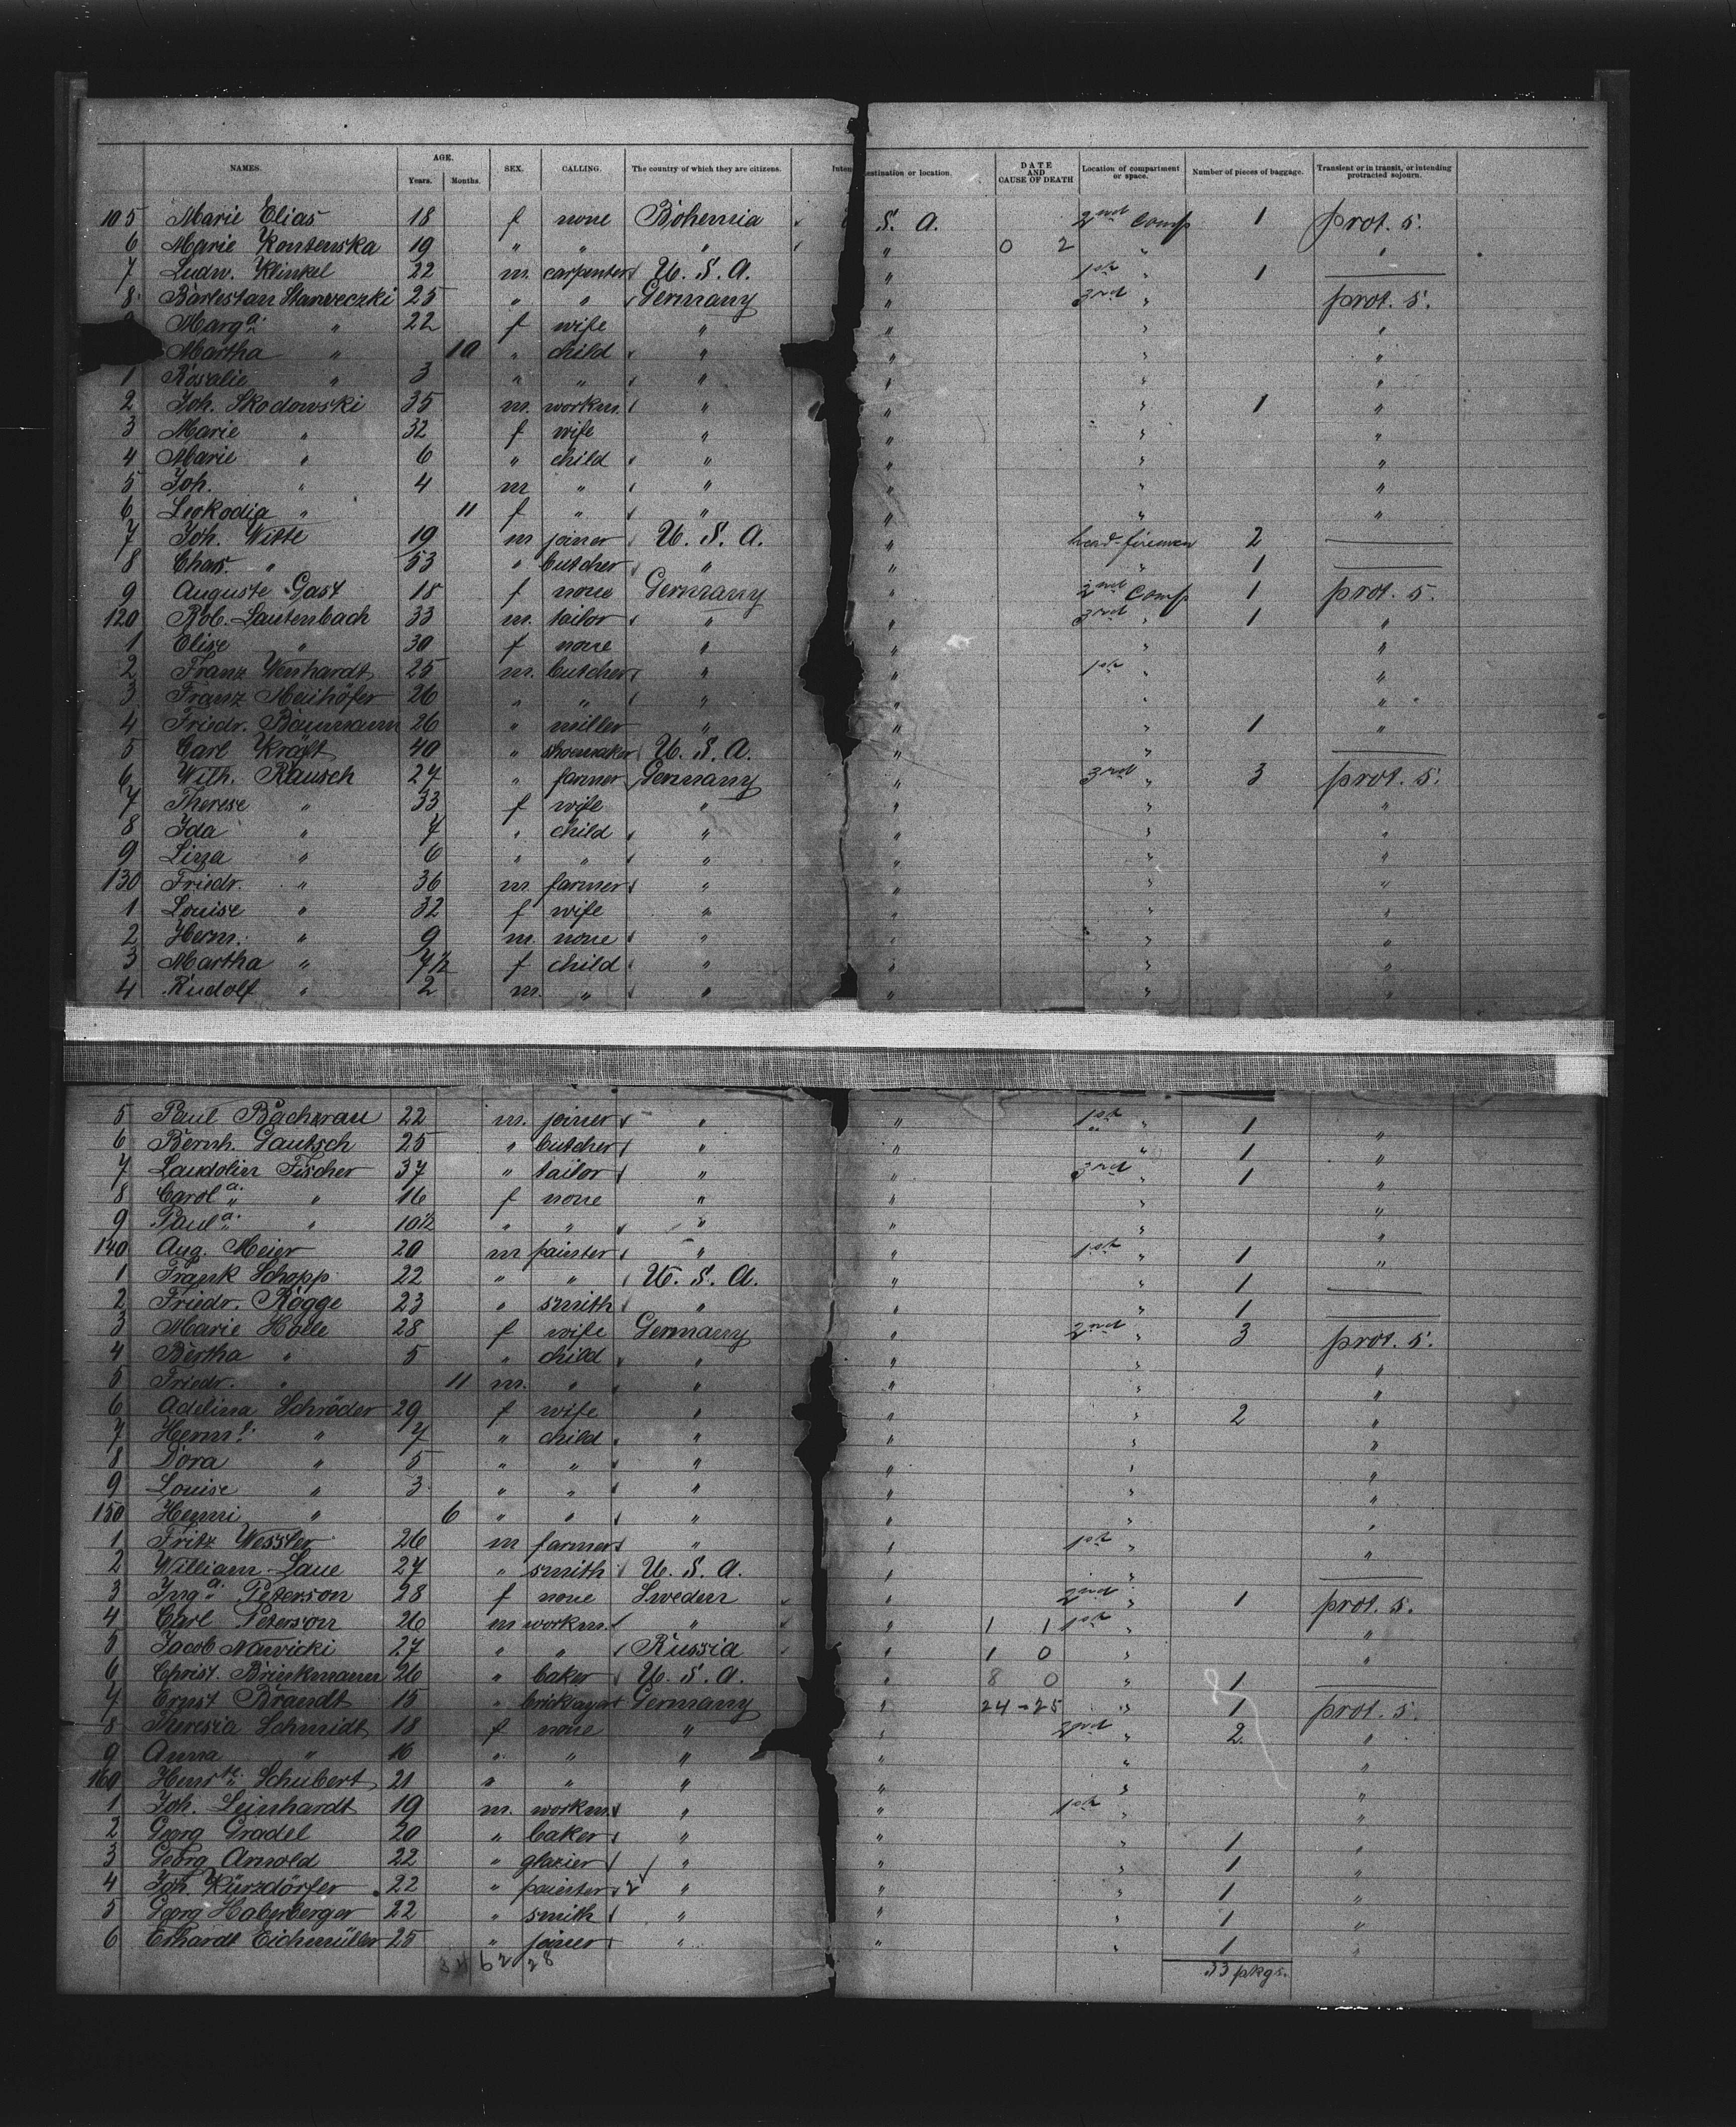 NAMES. AGE. Years. Months. SEX. CALLING. The country of which they are citizens. Inten estination or location. DATE AND CAUSE OF DEATH Location of compartment or space. Number of pieces of baggage. Transient or in transit, or intending protracted sojourn.
105 Marie Elias 18 f none Bohemia S. A. 2nd Comp 1 prot. s.
6 Marie Kontenska 19 " " " " 0 2 " "
7 Ludw. Klinkel 22 m. carpenter U. S. A. " 1st " 1 —
8 Barlestan Stanveczki 25 " " Germany " 3rd " prot. s.
Marga. " 22 f wife " " " "
Martha " 10 " child " " " "
1 Rosalie " 3 " " " " " "
2 Joh. Skodowski 35 m. workm. " " " 1 "
3 Marie " 32 f wife " " " "
4 Marie " 6 " child " " " "
5 Joh. " 4 m " " " " "
6 Leokodia " 11 f " " " " "
7 Joh. Witte 19 m joiner U. S. A. " head-firemen 2 —
8 Char. " 53 " butcher " " " 1
9 Auguste Gast 18 f none Germany " 2nd Comp 1 prot. s.
120 Rob. Lautenbach 33 m. tailor " " 3rd " 1 "
1 Elise " 30 f none " " " "
2 Franz Wenhardt 25 m. butcher " " 1st " "
3 Franz Maihöfer 26 " " " " " "
4 Friedr. Baumann 26 " miller " " " 1 "
5 Carl Kraft 40 " shoemaker U. S. A. " " —
6 Wilh. Rausch 27 " farmer Germany " 3rd " 3 prot. s.
7 Therese " 33 f wife " " " "
8 Ida " 7 " child " " " "
9 Lizza " 6 " " " " " "
130 Friedr. " 36 m. farmer " " " "
1 Louise " 32 f wife " " " "
2 Herm. " 9 m. none " " " "
3 Martha " 7½ f child " " " "
4 Rudolf " 2 m. " " " " "
5 Paul Bacherau 22 m. joiner " " 1st " 1 "
6 Bernh. Gautsch 25 " butcher " " " 1 "
7 Landolin Fischer 37 " tailor " " 3rd " 1 "
8 Carola. " 16 f none " " " "
9 Paula. " 10½ " " " " " "
140 Aug. Meier 20 m painter " " 1st " 1 "
1 Frank Schopp 22 " " U. S. A. " " 1 —
2 Friedr. Rogge 23 " smith " " " 1 —
3 Marie Holle 28 f wife Germany " 2nd " 3 prot. s.
4 Bertha " 5 " child " " " "
5 Friedr. " 11 m. " " " " "
6 Adelina Schröder 29 f wife " " " 2 "
7 Herm. " 7 " child " " " "
8 Dora " 5 " " " " " "
9 Louise " 3 " " " " " "
150 Henni " 6 " " " " " "
1 Fritz Wessler 26 m farmer " " 1st " "
2 William Laue 27 " smith U. S. A. " " —
3 Inga. Peterson 28 f none Sweden " 2nd " 1 prot. s.
4 Carl Peterson 26 m workm. " " 1 1 1st " "
5 Jacob Nawicki 27 " " Russia " 1 0 " "
6 Christ. Brinkmann 26 " baker U. S. A. " 8 0 " 1 —
7 Ernst Brandt 15 " bricklayer Germany " 24-25 " 1 prot. s.
8 Theresia Schmidt 18 f none " " 2nd " 2 "
9 Anna " 16 " " " " " "
160 Henrte. Schubert 21 " " " " " "
1 Joh. Leinhardt 19 m. workm. " " 1st " "
2 Georg Gradel 20 " baker " " " 1 "
3 Georg Arnold 22 " glazier " " " 1 "
4 Joh. Kürzdörfer 22 " painter " " " 1 "
5 Georg Haberberger 22 " smith " " " 1 "
6 Erhardt Eichmüller 25 " joiner " " " 1 "
34 62 28 33 pkgs.